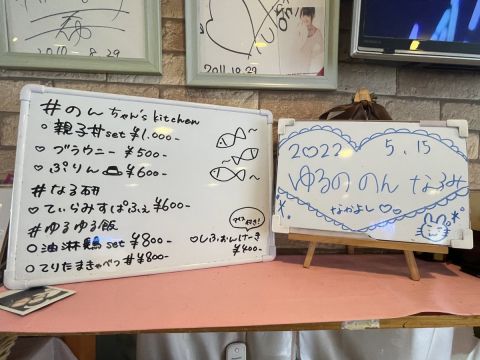 2010-8.29
2011.10.29
#のんちゃん's kitchen
○親子丼set ¥1.000-
♡ブラウニー ¥500-
♡ぷりん ¥600-
#なる研
♡てぃらみすぱふぇ ¥600-
#ゆるゆる飯
○油淋鶏set ¥800-
○てりたまきゃべつ丼 ¥800-
♡しふぉんけーき
¥400-
2♡22 5.15
ゆるの のん なるみ
なかよし♡♡